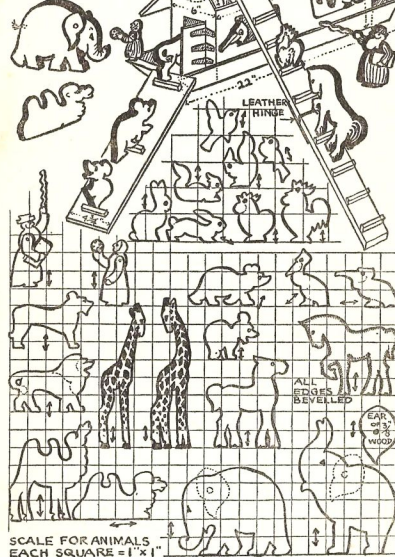 6"
22"
LEATHER
HINGE
ALL
EDGES
BEVELLED
EAR
OF 3/8"
WOOD
SCALE FOR ANIMALS
EACH SQUARE = 1" X 1"